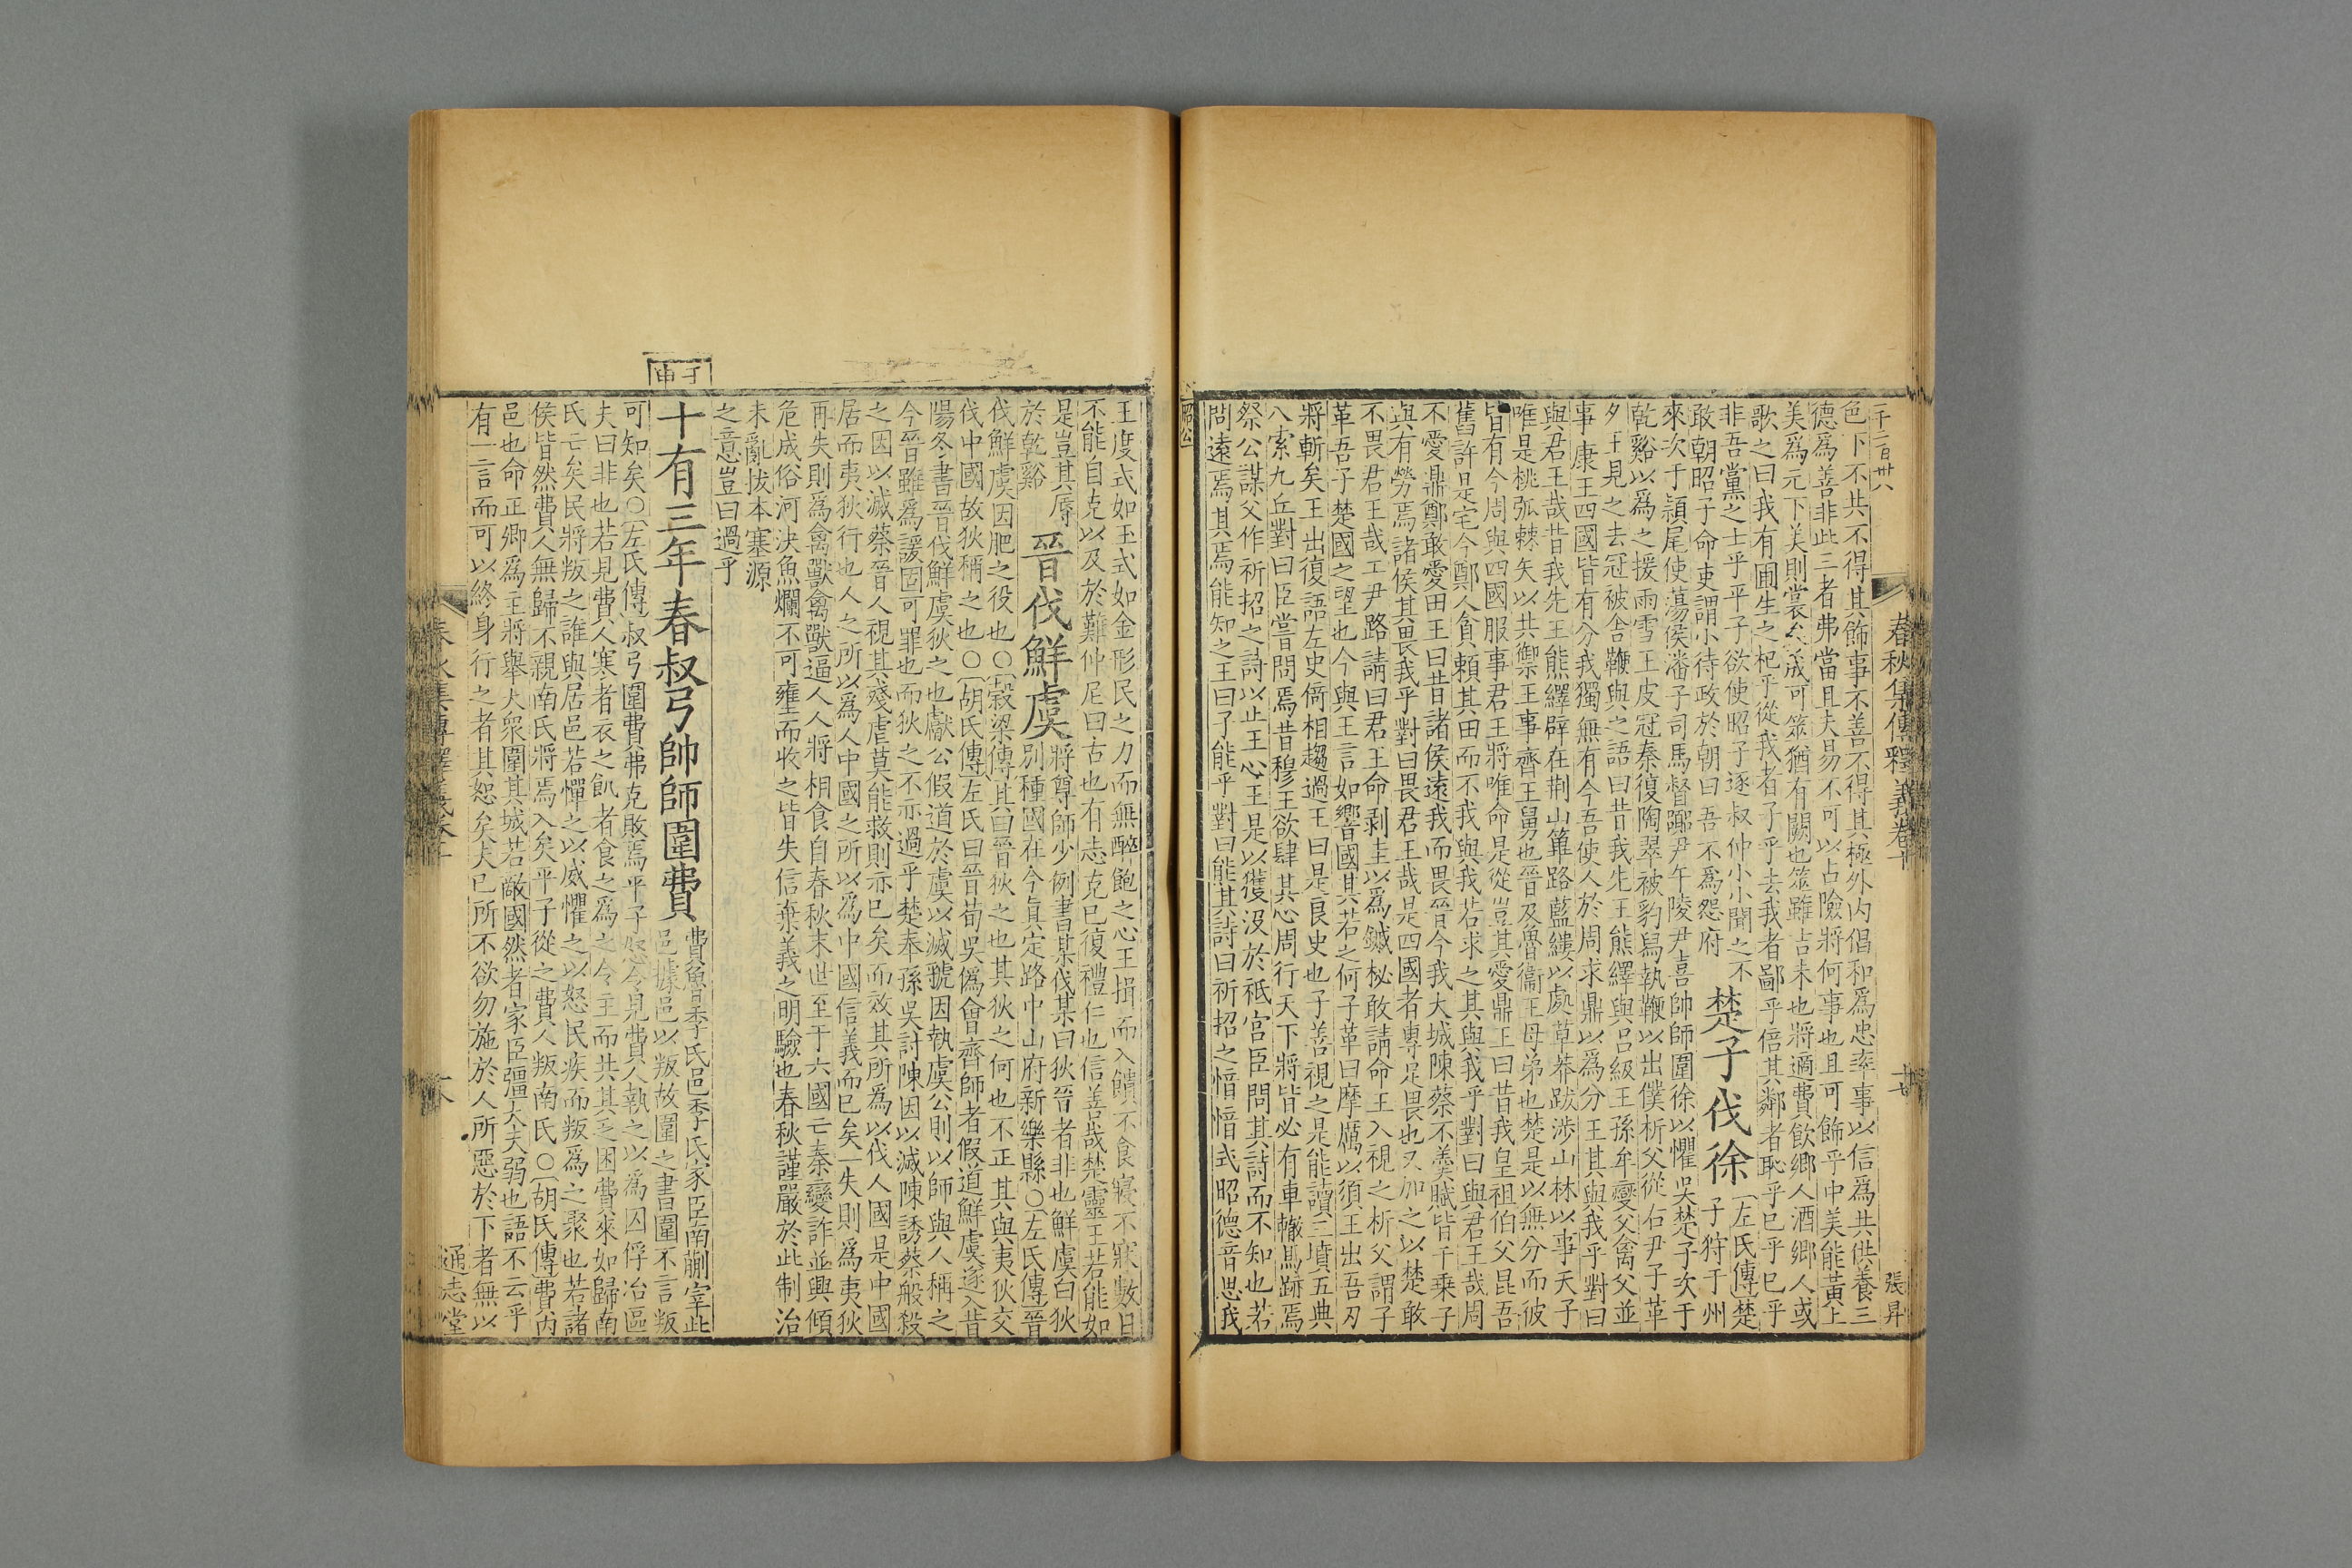 一千二百卅八
春秋集傳釋義卷十
廿七
張昇
色下不共不得其飾事不善不得其極外内倡和為忠率事以信為共供養三
德為善非此三者弗當且夫易不可以占險將何事也且可飾乎中美能黃上
美為元下美則裳參成可筮猶有闕也筮雖吉未也將適費飲鄉人酒鄉人或
歌之曰我有圃生之杞乎從我者子乎去我者鄙乎倍其鄰者恥乎已乎已乎
非吾黨之士乎平子欲使昭子逐叔仲小小聞之不
敢朝昭子命吏謂小待政於朝曰吾不為怨府
楚子伐徐
左氏傳楚
子狩于州
來次于潁尾使蕩侯潘子司馬督囂尹午陵尹喜帥師圍徐以懼吳楚子次于
乾谿以為之援雨雪王皮冠秦復陶翠被豹舄執鞭以出僕析父從右尹子革
夕王見之去冠被舍鞭與之語曰昔我先王熊繹與呂級王孫牟燮父禽父並
事康王四國皆有分我獨無有今吾使人於周求鼎以為分王其與我乎對曰
與君王哉昔我先王熊繹辟在荆山篳路藍縷以處草莽跋涉山林以事天子
唯是桃弧棘矢以共禦王事齊王舅也晉及魯衞王母弟也楚是以無分而彼
皆有今周與四國服事君王將唯命是從豈其愛鼎王曰昔我皇祖伯父昆吾
舊許是宅今鄭人貪賴其田而不我與我若求之其與我乎對曰與君王哉周
不愛鼎鄭敢愛田王曰昔諸侯遠我而畏晉今我大城陳蔡不羹賦皆千乘子
與有勞焉諸侯其畏我乎對曰畏君王哉是四國者專足畏也又加之以楚敢
不畏君王哉工尹路請曰君王命剥圭以為鏚柲敢請命王入視之析父謂子
革吾子楚國之望也今與王言如響國其若之何子革曰摩厲以須王出吾刃
將斬矣王出復語左史倚相趨過王曰是良史也子善視之是能讀三墳五典
八索九丘對曰臣嘗問焉昔穆王欲肆其心周行天下將皆必有車轍馬跡焉
祭公謀父作祈招之詩以止王心王是以獲没於祇宫臣問其詩而不知也若
問遠焉其焉能知之王曰子能乎對曰能其詩曰祈招之愔愔式昭德音思我
昭公
王度式如玉式如金形民之力而無醉飽之心王揖而入饋不食寢不寐數日
不能自克以及於難仲尼曰古也有志克已復禮仁也信善哉楚靈王若能如
是豈其辱
於乾谿
晉伐鮮虞
將尊師少例書某伐某曰狄晉者非也鮮虞白狄
别種國在今真定路中山府新樂縣○左氏傳晉
伐鮮虞因肥之役也○穀梁傳其曰晉狄之也其狄之何也不正其與夷狄交
伐中國故狄稱之也○胡氏傳左氏曰晉荀吳偽會齊師者假道鮮虞遂入昔
陽冬書晉伐鮮虞狄之也獻公假道於虞以滅虢因執虞公則以師與人稱之
今晉雖為譎固可罪也而狄之不亦過乎楚奉孫吳討陳因以滅陳誘蔡般殺
之因以滅蔡晉人視其殘虐莫能救則亦已矣而效其所為以伐人國是中國
居而夷狄行也人之所以為人中國之所以為中國信義而已矣一失則為夷狄
再失則為禽獸禽獸逼人人將相食自春秋末世至于六國亡秦變詐並興傾
危成俗河決魚爛不可壅而收之皆失信棄義之明驗也春秋謹嚴於此制治
未亂拔本塞源
之意豈曰過乎
十有三年春叔弓帥師圍費
費魯季氏邑季氏家臣南蒯宰此
邑據邑以叛故圍之書圍不言叛
可知矣○左氏傳叔弓圍費弗克敗焉平子怒令見費人執之以為囚俘冶區
夫曰非也若見費人寒者衣之飢者食之為之令主而共其乏困費來如歸南
氏亡矣民將叛之誰與居邑若憚之以威懼之以怒民疾而叛為之聚也若諸
侯皆然費人無歸不親南氏將焉入矣平子從之費人叛南氏○胡氏傳費内
邑也命正卿為主將舉大衆圍其城若敵國然者家臣彊大夫弱也語不云乎
有一言而可以終身行之者其恕矣夫已所不欲勿施於人所惡於下者無以
通志堂